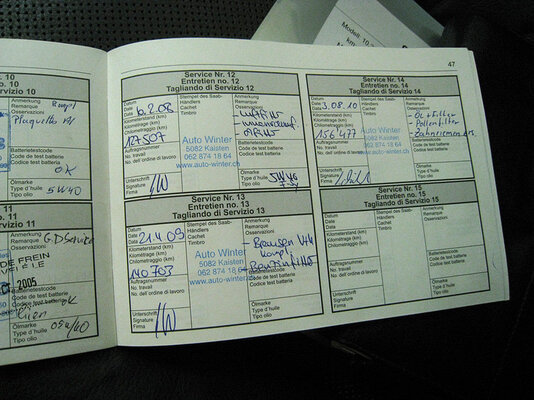 Modell: 10
km
47
10
10
rvizio 10
Anmerkung
Remarque
Osservazioni
Batterietestcode
Code de test batterie
Codice test batteria
OK
Ölmarke
Type d'huile
Tipo olio
5W40
Service Nr. 12
Entretien no. 12
Tagliando di Servizio 12
Datum
Date
Data
6.2.08
Kilometerstand (km)
Kilométrage (km)
Chilometraggio (km)
127507
Auftragsnummer
No. travail
No. dell'ordine di lavoro
Unterschrift
Signature
Firma
Stempel des Saab-
Händlers
Cachet
Timbro
Auto Winter
5082 Kaisten
062 874 18 64
www.auto-winter.ch
Anmerkung
Remarque
Osservazioni
Batterietestcode
Code de test batterie
Codice test batteria
Ölmarke
Type d'huile
Tipo olio
5W40
Service Nr. 14
Entretien no. 14
Tagliando di Servizio 14
Datum
Date
Data
3.08.10
Kilometerstand (km)
Kilométrage (km)
Chilometraggio (km)
156'477
Auftragsnummer
No. travail
No. dell'ordine di lavoro
Unterschrift
Signature
Firma
Stempel des Saab-
Händlers
Cachet
Timbro
Auto Winter
5082 Kaisten
062 874 18 64
www.auto-winter.ch
Anmerkung
Remarque
Osservazioni
- Öl + Filter
- Pollenfilter
- Zahnriemen
Batterietestcode
Code de test batterie
Codice test batteria
Ölmarke
Type d'huile
Tipo olio
11
11
rvizio 11
Anmerkung
Remarque
Osservazioni
G.D Service
DE FREIN
2005
Batterietestcode
Code de test batterie
Codice test batteria
OK
Ölmarke
Type d'huile
Tipo olio
Service Nr. 13
Entretien no. 13
Tagliando di Servizio 13
Datum
Date
Data
21.4.09
Kilometerstand (km)
Kilométrage (km)
Chilometraggio (km)
140 703
Auftragsnummer
No. travail
No. dell'ordine di lavoro
Unterschrift
Signature
Firma
Stempel des Saab-
Händlers
Cachet
Timbro
Auto Winter
5082 Kaisten
062 874 18 64
www.auto-winter.ch
Anmerkung
Remarque
Osservazioni
- Bremsen
kompl.
- Benzinfilter
Batterietestcode
Code de test batterie
Codice test batteria
Ölmarke
Type d'huile
Tipo olio
Service Nr. 15
Entretien no. 15
Tagliando di Servizio 15
Datum
Date
Data
Kilometerstand (km)
Kilométrage (km)
Chilometraggio (km)
Auftragsnummer
No. travail
No. dell'ordine di lavoro
Unterschrift
Signature
Firma
Stempel des Saab-
Händlers
Cachet
Timbro
Anmerkung
Remarque
Osservazioni
Batterietestcode
Code de test batterie
Codice test batteria
Ölmarke
Type d'huile
Tipo olio